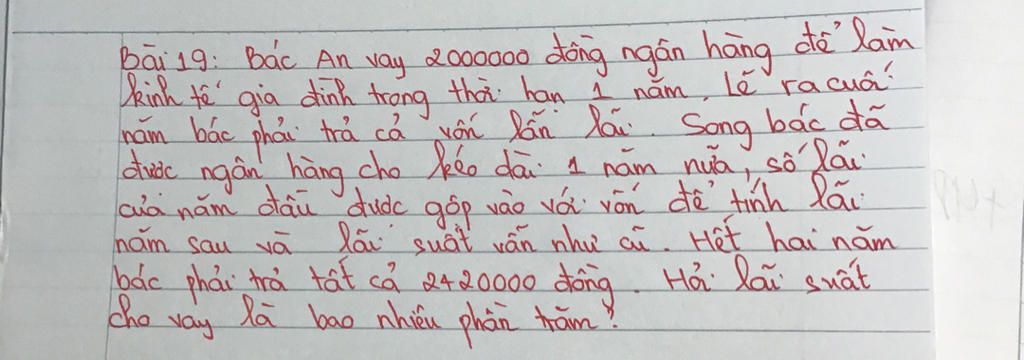 Bài 19: Bác An vay 2000000 đồng ngân hàng để làm
kinh tế gia đình trong thời hạn 1 năm. Lẽ ra cuối
năm bác phải trả cả vốn lẫn lãi. Song bác đã
được ngân hàng cho kéo dài 1 năm nữa, số lãi
của năm đầu được gộp vào với vốn để tính lãi
năm sau và lãi suất vẫn như cũ. Hết hai năm
bác phải trả tất cả 2420000 đồng. Hỏi lãi suất
cho vay là bao nhiêu phần trăm?